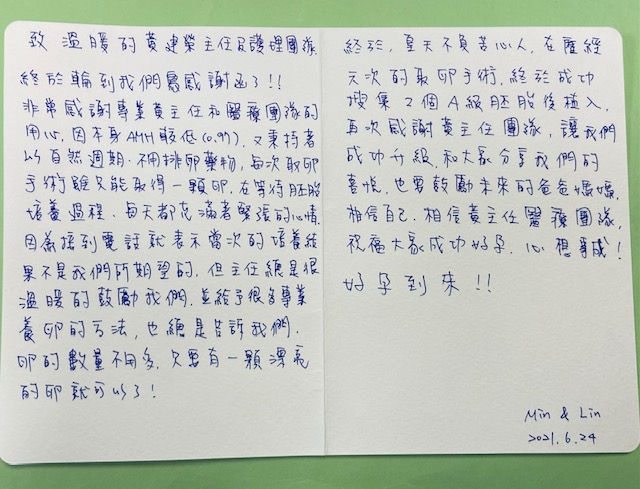 致 溫暖的黃建榮主任及護理團隊
終於輪到我們寫感謝函了!!
非常感謝專業黃主任和醫療團隊的
用心，因本身AMH較低(0.97)，又秉持者
以自然週期．不用排卵藥物，每次取卵
手術雖只能取得一顆卵，在等待胚胎
培養過程．每天都充滿著緊張的心情，
因為接到電話就表示當次的培養結
果不是我們所期望的，但主任總是很
溫暖的鼓勵我們，並給予很多專業
養卵的方法，也總是告訴我們．
卵的數量不用多，只要有一顆漂亮
的卵就可以了!
終於，皇天不負苦心人，在歷經
六次的取卵手術，終於成功
搜集2個A級胚胎後植入，
再次感謝黃主任團隊，讓我們
成功升級，和大家分享我們的
喜悅，也要鼓勵未來的爸爸媽媽，
相信自己．相信黃主任醫療團隊，
祝福大家成功好孕，心想事成!
好孕到來!!
Min & Lin
2021.6.24